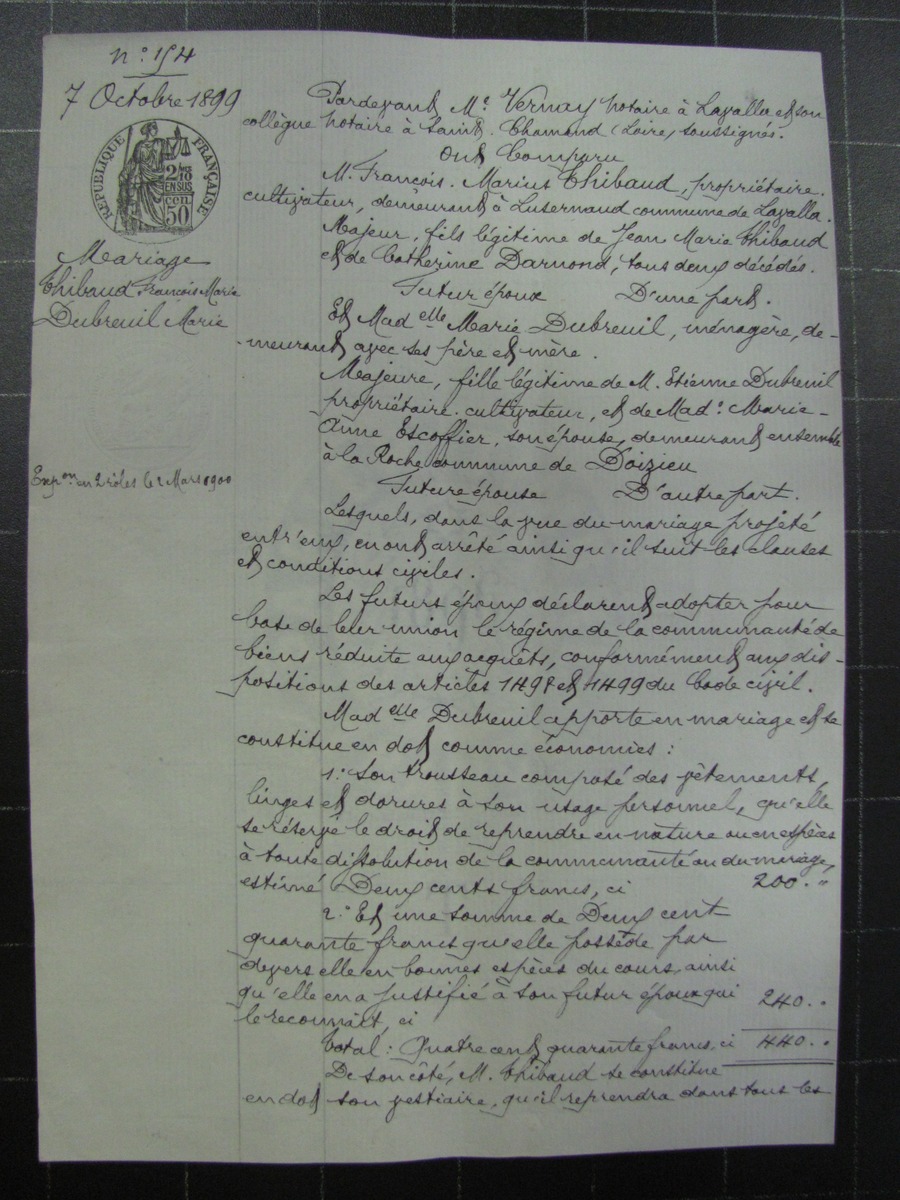 n° 154
7 Octobre 1899
RÉPUBLIQUE FRANÇAISE
2/10 EN SUS
50 cen
Mariage
Thibaud François Marie
Dubreuil Marie
Expon en 2 rôles le 2 Mars 1900
Pardevant Me Vernay notaire à Lavalla et son
collègue notaire à Saint. Chamond (Loire, soussignés.
Ont Comparu
M. François. Marius Thibaud, propriétaire.
cultivateur, demeurant à Luzernaud commune de Lavalla.
Majeur, fils légitime de Jean Marie Thibaud
et de Catherine Darnond, tous deux décédés.
Futur époux D'une part.
Et Madelle Marie Dubreuil, ménagère, de-
-meurant avec ses père et mère.
Majeure, fille légitime de M. Etienne Dubreuil
propriétaire. cultivateur, et de Made Marie-
Anne Escoffier, son épouse, demeurant ensemble
à la Roche commune de Doizieu
Future épouse D'autre part.
Lesquels, dans la vue du mariage projeté
entr'eux, en ont arrêté ainsi qu'il suit les clauses
et conditions civiles.
Les futurs époux déclarent adopter pour
base de leur union le régime de la communauté de
biens réduite aux acquêts, conformément aux dis-
positions des articles 1498 et 1499 du Code civil.
Madelle Dubreuil apporte en mariage et se
constitue en dot comme économies :
1° Son trousseau composé des vêtements,
linges et dorures à son usage personnel, qu'elle
se réserve le droit de reprendre en nature ou en espèces
à toute dissolution de la communauté ou du mariage,
estimé Deux cents francs, ci 200. "
2° Et une somme de Deux cent
quarante francs qu'elle possède par
devers elle en bonnes espèces du cours, ainsi
qu'elle en a justifié à son futur époux qui
le reconnait, ci 240. "
Total : Quatre cent quarante francs, ci 440. "
De son côté, M. Thibaud se constitue
en dot son vestiaire, qu'il reprendra dans tous les